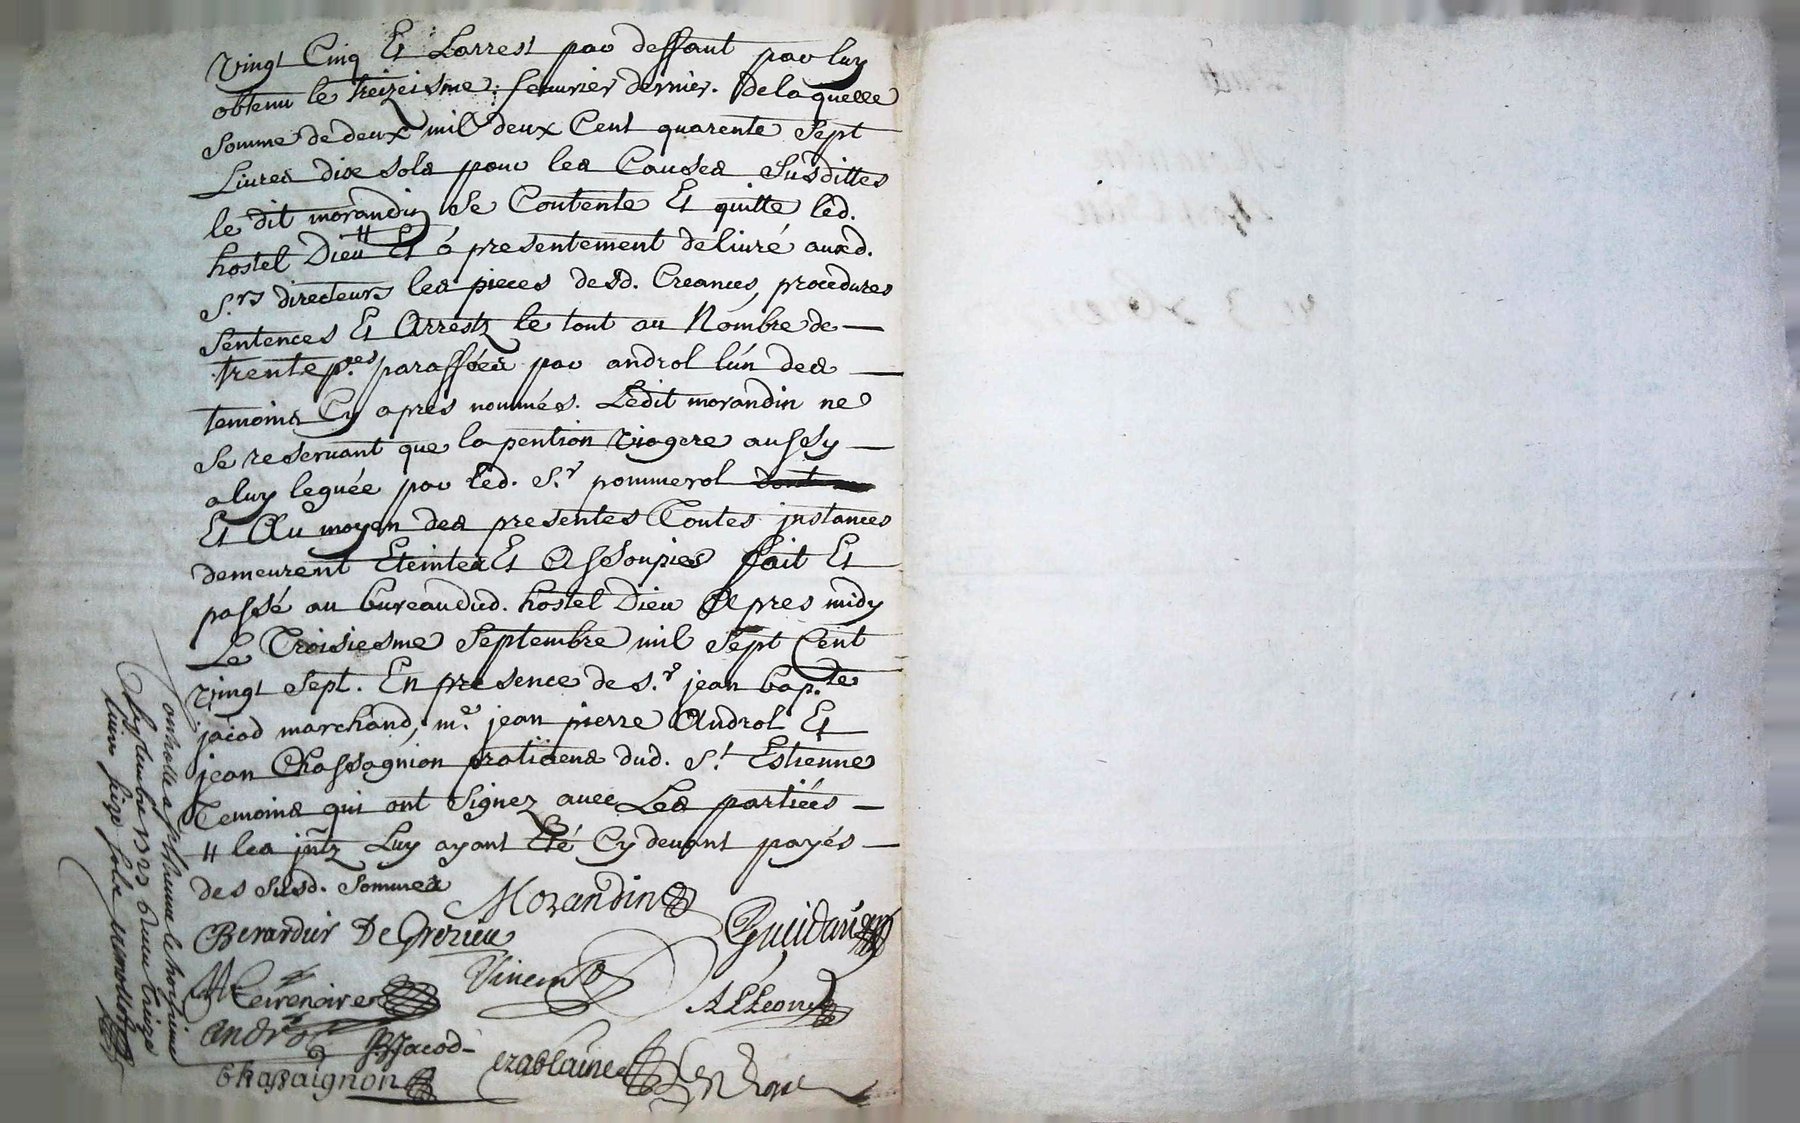 vingt Cinq Et Larrest par deffaut par luy
obtenu le treiziesme feburier dernier. De laquelle
Somme de deux mil deux Cent quarente Sept
Liures dix sols pour les Causes Susdittes
le dit morandin Se Contente Et quitte led.
hostel Dieu " Et a presentement deliuré auxd.
S.rs directeurs les pieces desd. Creances, procedures
Sentences Et Arrestz le tout au Nombre de —
trente p.ces paraffées par androl lún des —
temoins Cy apres nommés. Ledit morandin ne
Se reseruant que la pention viagere aussy —
a luy leguée par led. S.r pommerol dont
Et Au moyen des presentes Toutes jnstances
demeurent Eteintes Et Assoupies fait Et
passé au bureau dud. hostel Dieu Apres midy
Le Troisiesme Septembre mil Sept Cent
vingt Sept. En presence de s.r jean bap.te
jacod marchand, m.e jean pierre Androl Et
jean Chassagnion pratitiens dud. S.t Estienne
Temoins qui ont Signez auec Les partiées —
" les jntz Luy ayant Eté Cy deuant payés —
des Susd. Sommes
Morandin
Berardier De Grezieu
Vincent
Teirenoire
ALLeon
androl
JBJacod
Chassaignon
Controllé a St Etienne le troisieme
Septembre 1727